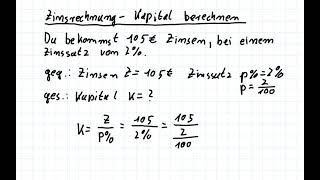 Zinsrechnung - Kapital berechnen
Du bekommst 105€ Zinsen, bei einem
Zinssatz von 2%.
geg.: Zinsen Z=105€ Zinssatz p%=2%
p=2/100
ges.: Kapital K=?
K= Z/p% = 105/2% = 105/(2/100)